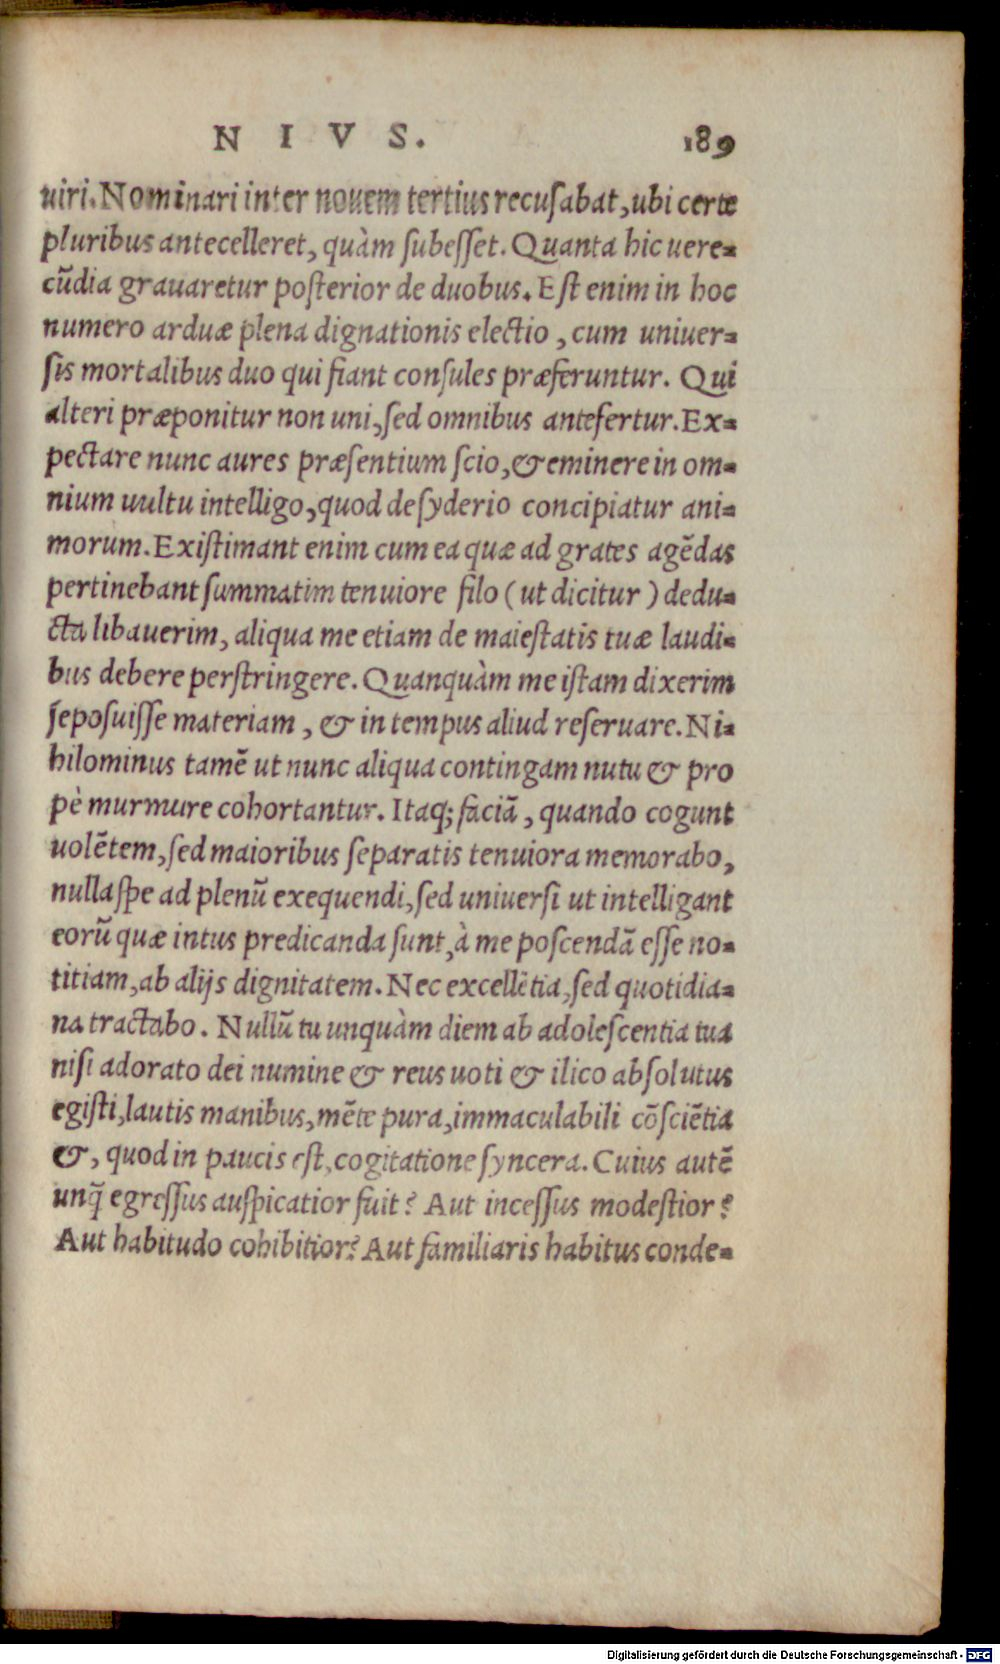 N I V S. 189
uiri. Nominari inter nouem tertius recuſabat, ubi certe
pluribus antecelleret, quàm ſubeſſet. Quanta hic uere⸗
cūdia grauaretur poſterior de duobus. Eſt enim in hoc
numero arduæ plena dignationis electio, cum uniuer⸗
ſis mortalibus duo qui fiant conſules præferuntur. Qui
alteri præponitur non uni, ſed omnibus antefertur. Ex⸗
pectare nunc aures præſentium ſcio, & eminere in om⸗
nium uultu intelligo, quod deſyderio concipiatur ani⸗
morum. Exiſtimant enim cum ea quæ ad grates agēdas
pertinebant ſummatim tenuiore filo (ut dicitur) dedu⸗
cta libauerim, aliqua me etiam de maieſtatis tuæ laudi⸗
bus debere perſtringere. Quanquàm me iſtam dixerim
ſepoſuiſſe materiam, & in tempus aliud reſeruare. Ni⸗
hilominus tamē ut nunc aliqua contingam nutu & pro
pè murmure cohortantur. Itaq; faciā, quando cogunt
uolētem, ſed maioribus ſeparatis tenuiora memorabo,
nulla ſpe ad plenū exequendi, ſed uniuerſi ut intelligant
eorū quæ intus predicanda ſunt, à me poſcendā eſſe no⸗
titiam, ab alijs dignitatem. Nec excellētia, ſed quotidia⸗
na tractabo. Nullū tu unquàm diem ab adoleſcentia tua
niſi adorato dei numine & reus uoti & ilico abſolutus
egiſti, lautis manibus, mēte pura, immaculabili cōſciētia
&, quod in paucis eſt, cogitatione ſyncera. Cuius autē
unq̄ egreſſus auſpicatior fuit? Aut inceſſus modeſtior?
Aut habitudo cohibitior? Aut familiaris habitus conde⸗
Digitalisierung gefördert durch die Deutsche Forschungsgemeinschaft - DFG